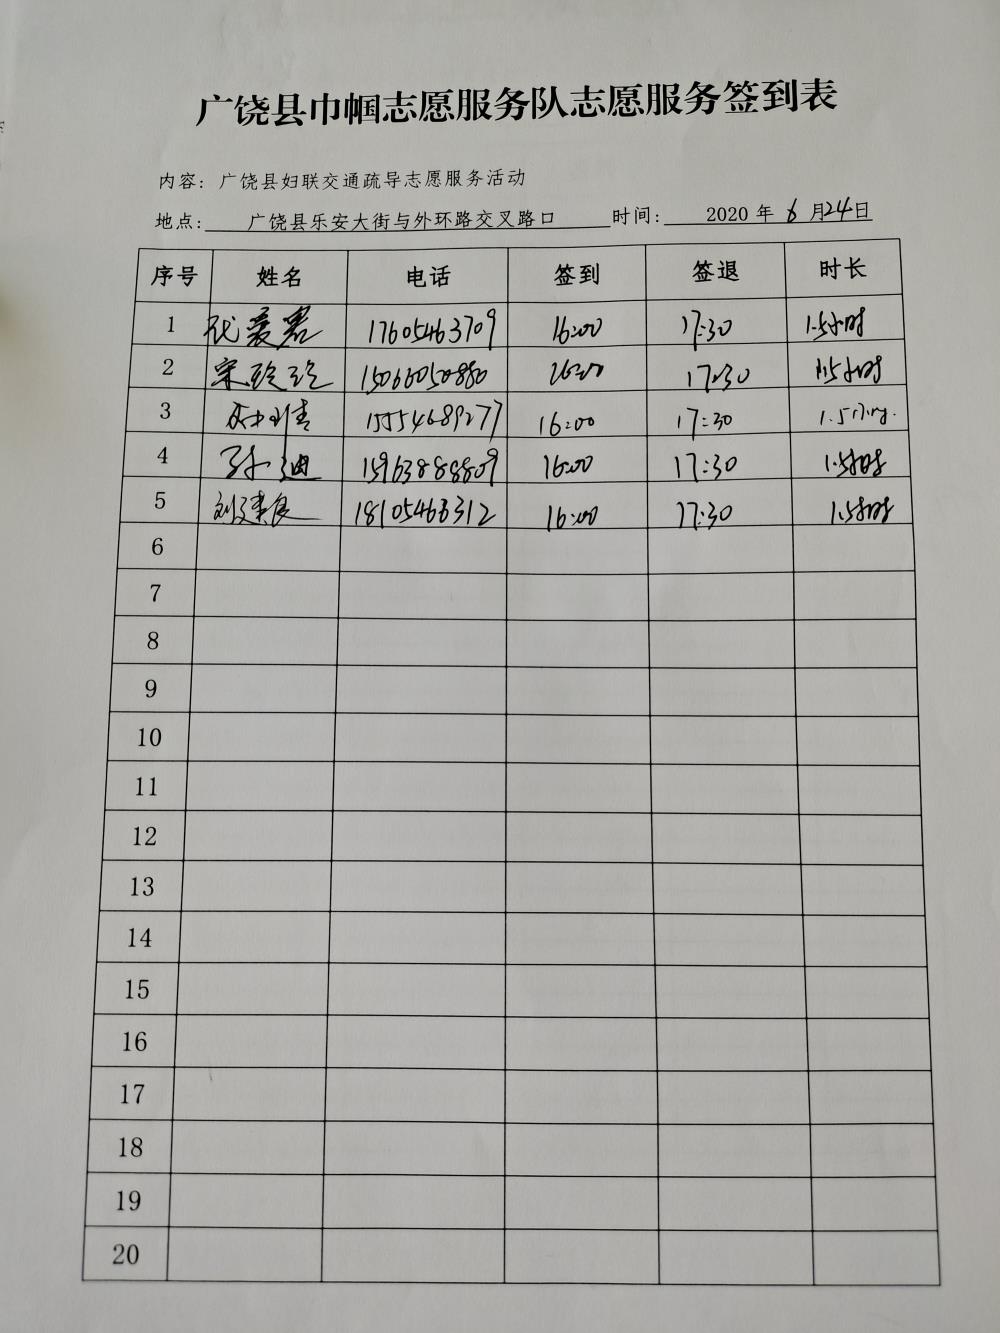 广饶县巾帼志愿服务队志愿服务签到表
内容：广饶县妇联交通疏导志愿服务活动
地点： 广饶县乐安大街与外环路交叉路口 时间： 2020 年 6 月24日
序号 姓名 电话 签到 签退 时长
1 17605463709 16:00 17:30 1.5小时
2 宋玲玲 15066050880 16:00 17:30 1.5小时
3 15554689277 16:00 17:30 1.5小时
4 孙迪 15963888809 16:00 17:30 1.5小时
5 18105463312 16:00 17:30 1.5小时
6
7
8
9
10
11
12
13
14
15
16
17
18
19
20